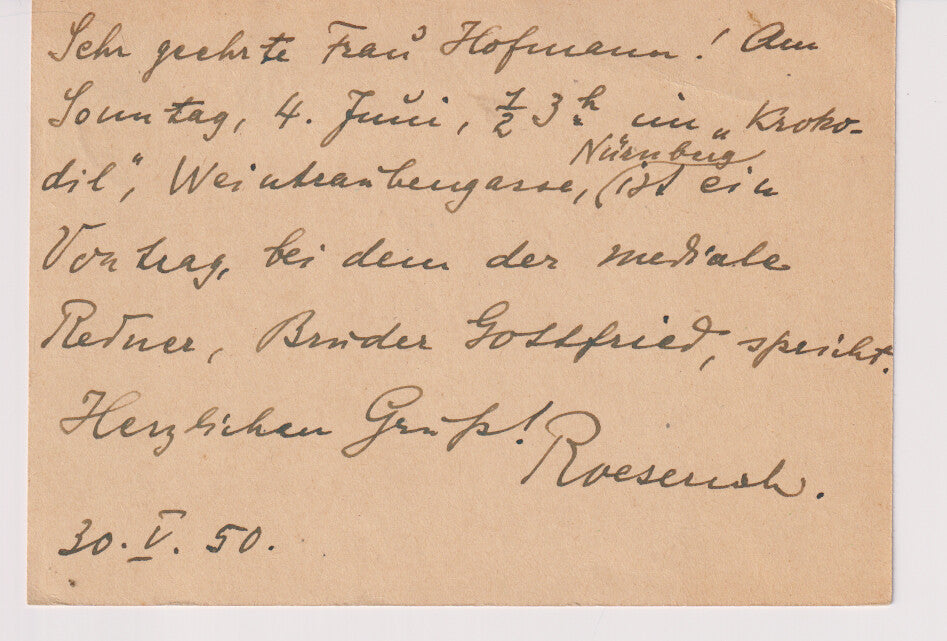 Sehr geehrte Frau Hofmann! Am
Sonntag, 4. Juni, ½ 3 h im „Kroko-
Nürnberg
dil“, Weintraubengasse, (ist ein
Vortrag, bei dem der mediale
Redner, Bruder Gottfried, spricht.
Herzlichen Gruß!
30. V. 50.